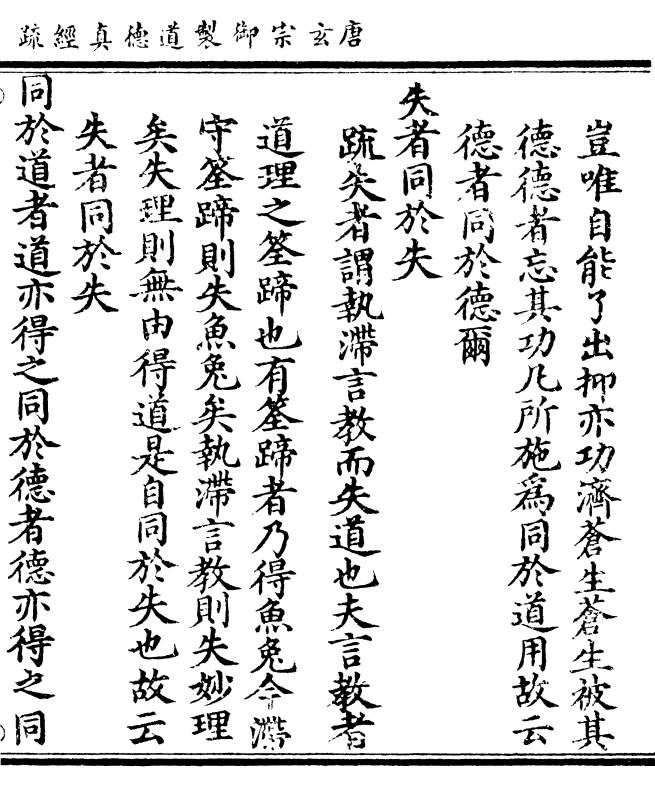 唐玄宗御製道德真經疏
豈唯自能了出抑亦功濟蒼生蒼生被其
德德者忘其功凡所施爲同於道用故云
德者同於德爾
失者同於失
疏失者謂執滯言教而失道也夫言教者
道理之筌蹄也有筌蹄者乃得魚兔今滯
守筌蹄則失魚兔矣執滯言教則失妙理
矣失理則無由得道是自同於失也故云
失者同於失
同於道者道亦得之同於德者德亦得之同